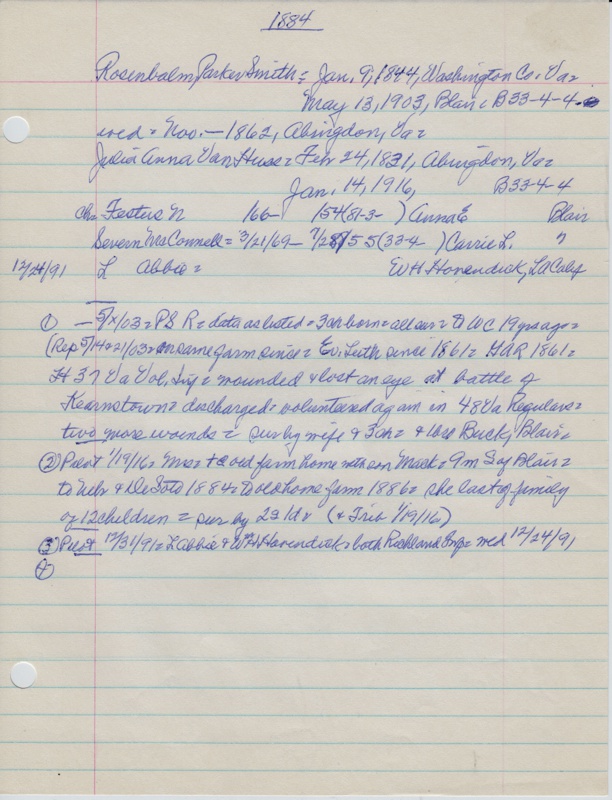 1884
Rosenbalm, Parker Smith = Jan. 9, 1844, Washington Co. Va =
May 13, 1903, Blair B33-4-4
wed = Nov. - 1862, Abingdon, Va =
Julia Anna Van Huss = Feb 24, 1831, Abingdon, Va =
Jan. 14, 1916, B33-4-4
ch = Festus N 166- 154(81-3- ) Anna E Blair
Severn McConnell = 3/21/69- 5 5(33-4 ) Carrie L. "
12/24/91 L Abbie = WH Hovendick, La Calif
① - 5/x/03 = PS R = data as listed = 3 ch born = all sur = to WC 19 yrs ago =
(Rep 5/14 & 21/03 = on same farm since = Ev. Luth since 1861 = GAR 1861 =
H 37 Va Vol. Inf = wounded & lost an eye at battle of
Kearnstown = discharged = volunteered again in 48 Va Regulars =
two more wounds = sur by wife & 3 ch = & bro Buck, Blair =
② Pilot 1/19/16 = Mrs = at old farm home with son Mack = 9m of Blair =
to Nebr & DeSoto 1884 = to old home farm 1886 = she last of family
of 12 children = sur by 2s 1d = (& Trib 1/19/16)
③ Pilot 12/31/91 = L Abbie & WH Hovendick = both Richland = wed 12/24/91
④